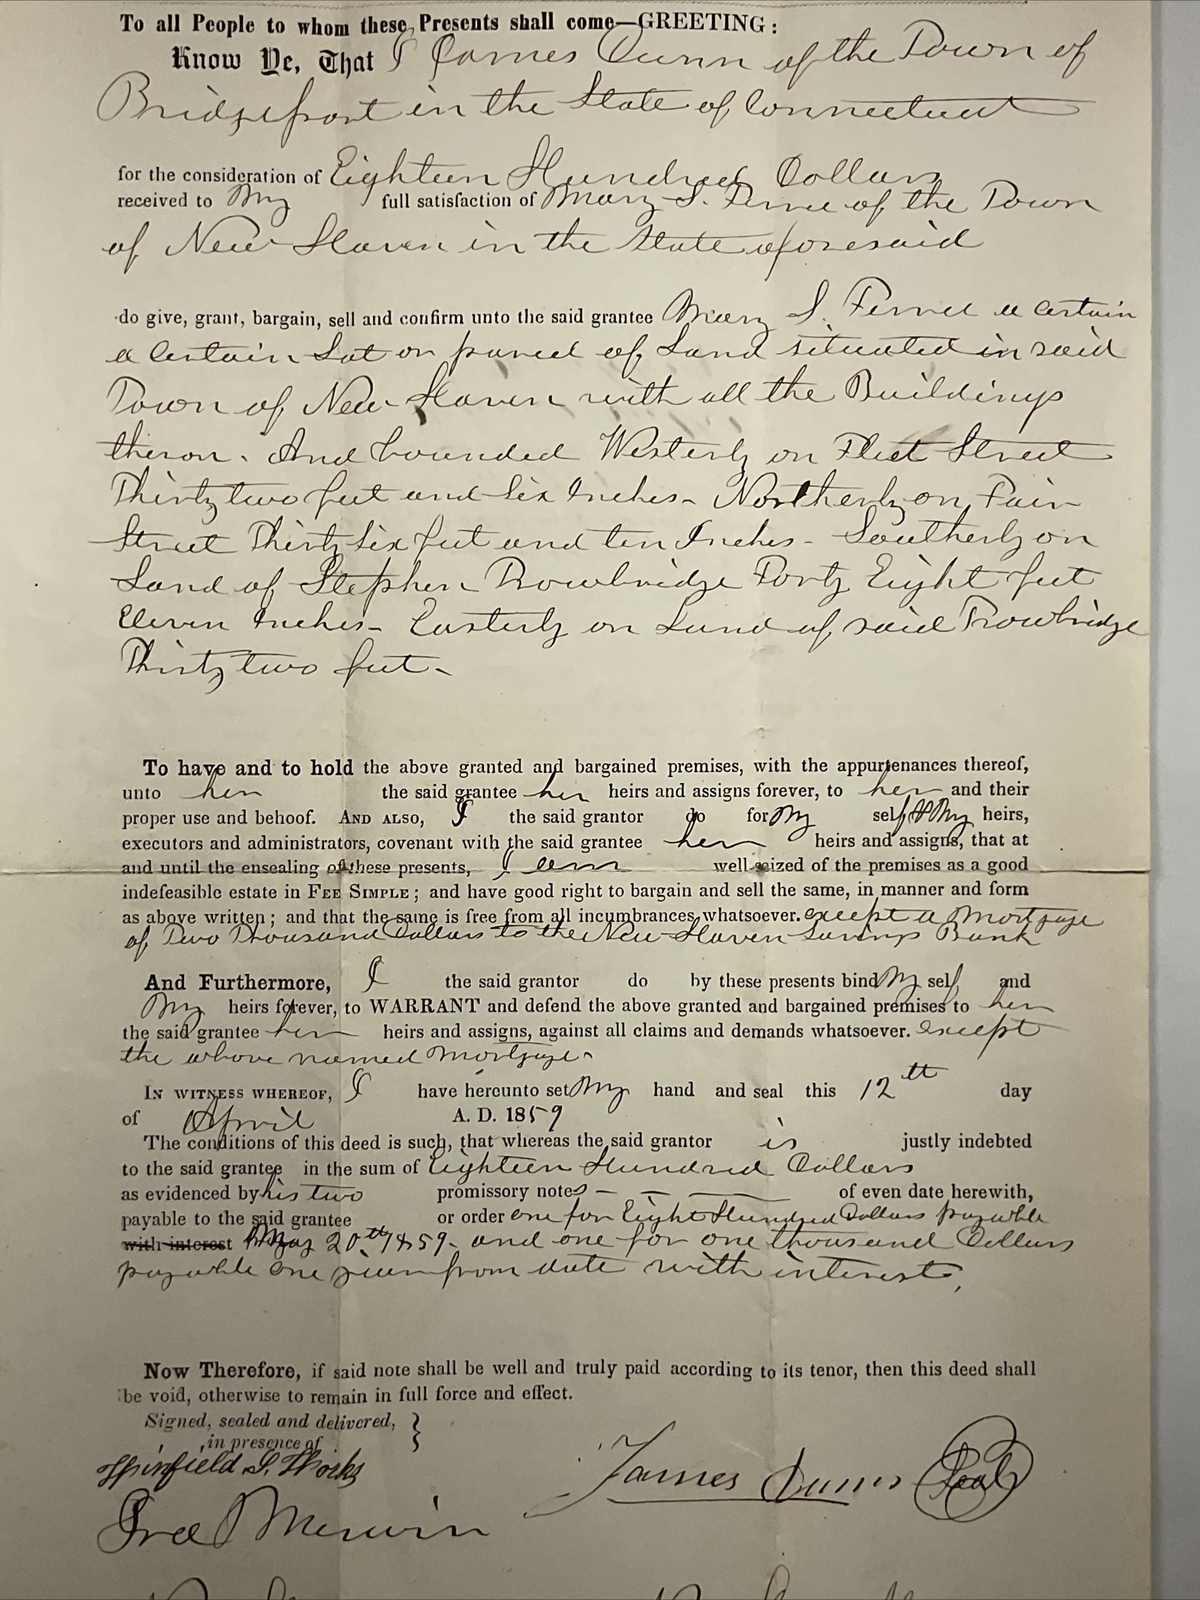 To all People to whom these Presents shall come—GREETING:
Know Ye, That I James Dunn of the Town of
Bridgeport in the State of Connecticut
for the consideration of Eighteen Hundred Dollars
received to My full satisfaction of Mary S. Ferne of the Town
of New Haven in the State aforesaid
do give, grant, bargain, sell and confirm unto the said grantee Mary S. a certain
a certain Lot or parcel of Land situated in said
Town of New Haven with all the Buildings
theron. And bounded Westerly on Fleet Street
Thirty two feet and Six Inches - Northerly on Fair
Street Thirty Six feet and ten Inches - Southerly on
Land of Stephen Trowbridge Forty Eight feet
Eleven Inches - Easterly on Land of said Trowbridge
Thirty two feet -
To have and to hold the above granted and bargained premises, with the appurtenances thereof,
unto her the said grantee her heirs and assigns forever, to her and their
proper use and behoof. AND ALSO, I the said grantor do for My self & My heirs,
executors and administrators, covenant with the said grantee her heirs and assigns, that at
and until the ensealing of these presents, I am well seized of the premises as a good
indefeasible estate in FEE SIMPLE; and have good right to bargain and sell the same, in manner and form
as above written; and that the same is free from all incumbrances whatsoever. except a Mortgage
of Two Thousand Dollars to the New Haven Savings Bank
And Furthermore, I the said grantor do by these presents bind My self and
My heirs forever, to WARRANT and defend the above granted and bargained premises to her
the said grantee her heirs and assigns, against all claims and demands whatsoever. except
the above named Mortgage -
IN WITNESS WHEREOF, I have hereunto set My hand and seal this 12th day
of April A. D. 1859
The conditions of this deed is such, that whereas the said grantor is justly indebted
to the said grantee in the sum of Eighteen Hundred Dollars
as evidenced by his two promissory notes — — —— of even date herewith,
payable to the said grantee or order one for Eight Hundred Dollars payable
with interest May 20th 1859 - and one for one thousand Dollars
payable one year from date with interest.
Now Therefore, if said note shall be well and truly paid according to its tenor, then this deed shall
be void, otherwise to remain in full force and effect.
Signed, sealed and delivered, }
in presence of
James Dunn Seal
Merwin